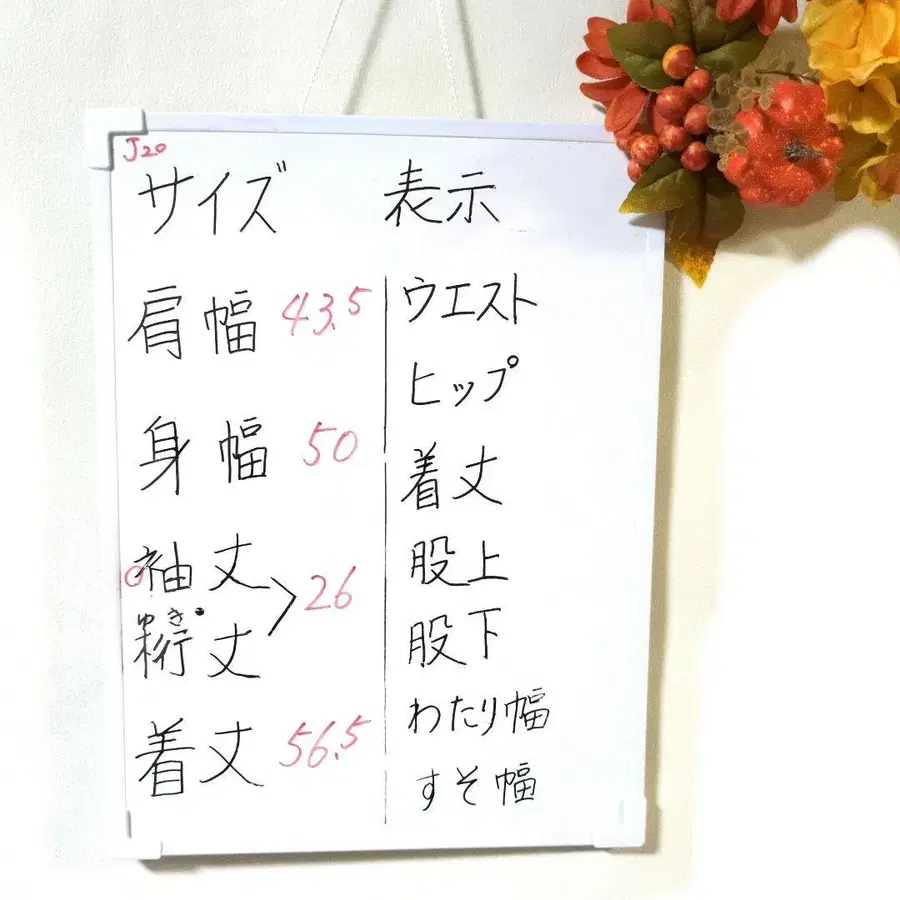 J20
サイズ 表示
肩幅 43.5
身幅 50
○袖丈 > 26
ゆき
裄丈
着丈 56.5
ウエスト
ヒップ
着丈
股上
股下
わたり幅
すそ幅